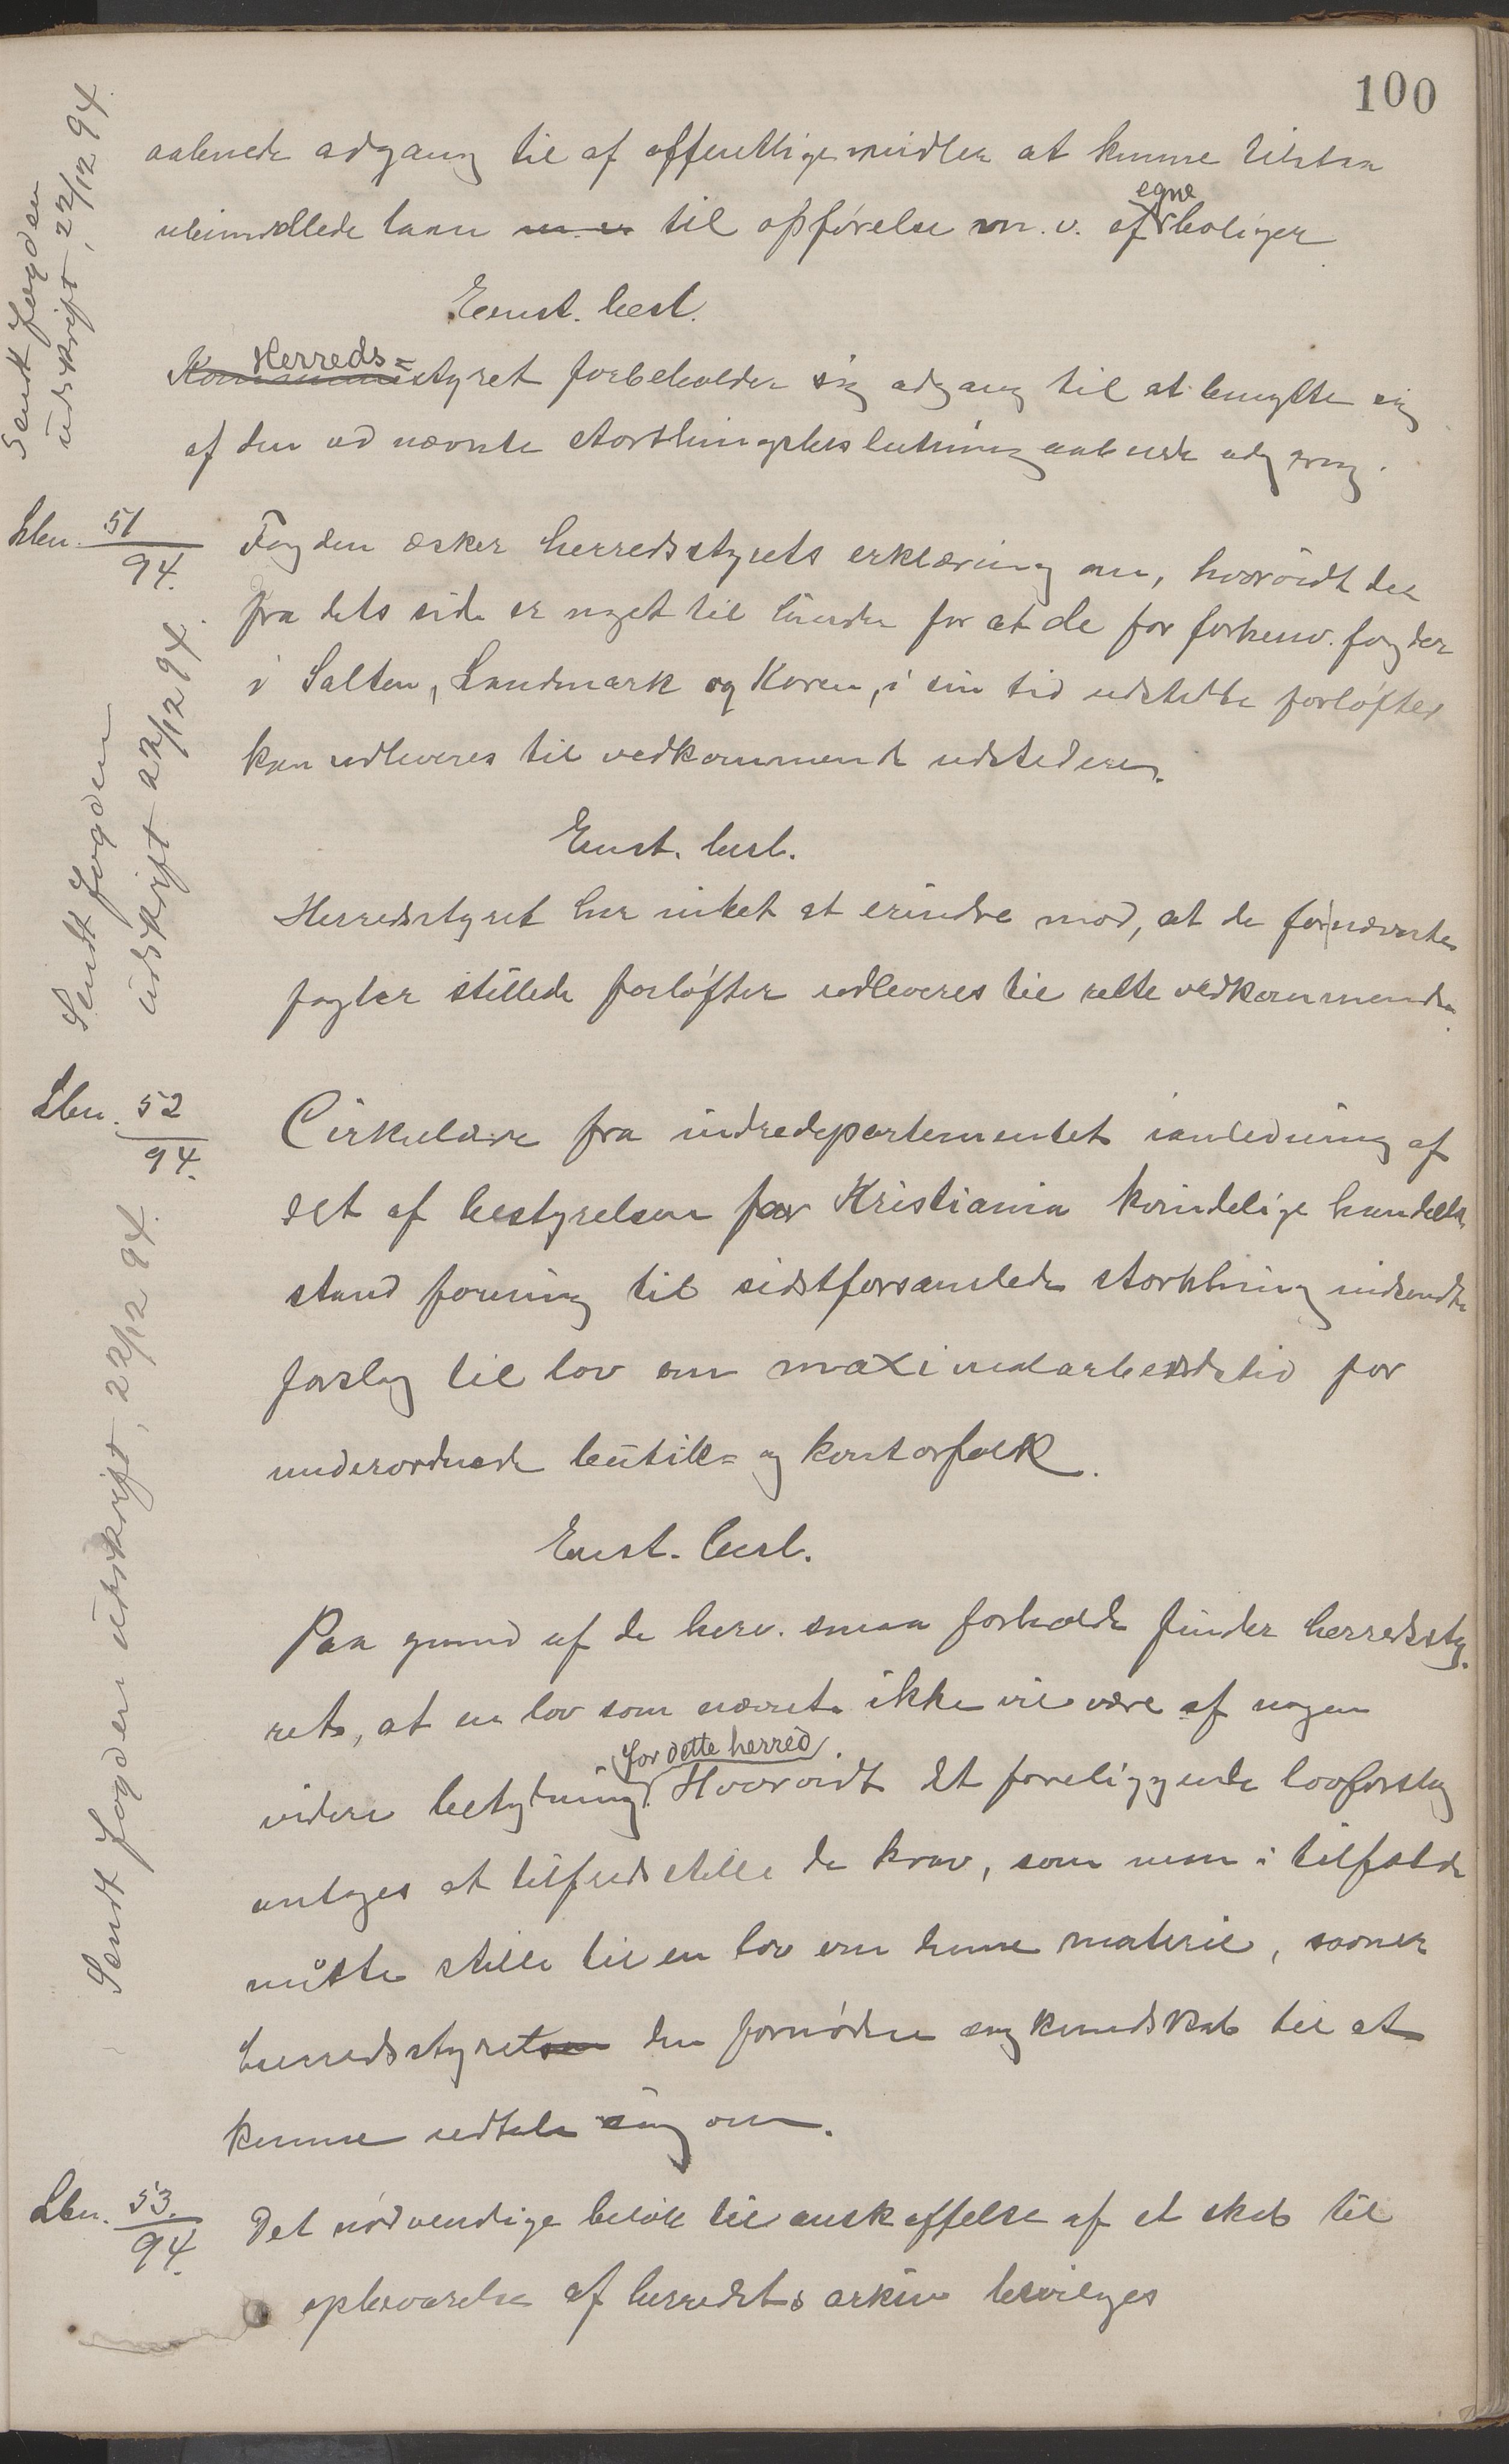 100
aabnede adgang til af offentlige midler at kunne tilstaa
ubemidlede laan til opførelse m. v. af egne boliger
Enst. besl.
Herreds=
Kommunestyret forbeholder sig adgang til at benytte sig
af den ved nævnte storthingsbeslutning aabnede adgang.
Sendt fogden
udskrift, 22/12 94.
Lbn. 51/94.
Fogden æsker herredsstyrets erklæring om, hvorvidt der
fra dets side er noget til hinder for at de for forhenv. fogder
i Salten, Landmark og Koren, i sin tid udstedte forløfter
kan udleveres til vedkommende udstedere.
Enst. besl.
Herredsstyret har intet at erindre mod, at de for nævnte
fogder stillede forløfter udleveres til rette vedkommende.
Sendt fogden
udskrift 22/12 94.
Lbn. 52/94.
Cirkulære fra indredepartementet i anledning af
det af bestyrelsen for Kristiania kvindelige handels
stand forening til sidstforsamlede storthing indsendte
forslag til lov om maximalarbeidstid for
underordnede butik= og kontorfolk.
Enst. besl.
Paa grund af de herv. smaa forholde finder herredssty.
ret, at en lov som nævnt ikke vil være af nogen
videre betydning for dette herred. Hvorvidt det foreliggende lovforslag
antages at tilfredsstille de krav, som man i tilfælde
måtte stille til en lov om denne materie, savner
herredsstyret den fornødne sagkundskab til at
kunne udtale sig om.
Sendt fogden udskrift, 22/12 94.
Lbn. 53./94.
Det nødvendige beløb til anskaffelse af et skab til
opbevarelse af herredets arkiv bevilges